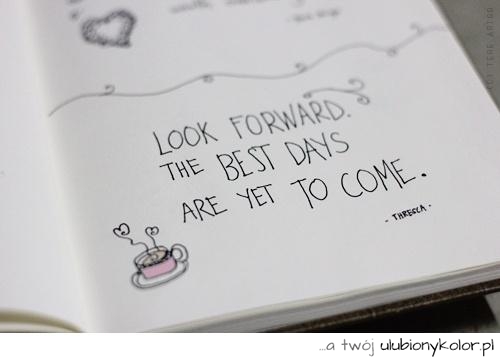 LOOK FORWARD.
THE BEST DAYS
ARE YET TO COME.
- THREECA -
...a twój ulubionykolor.pl